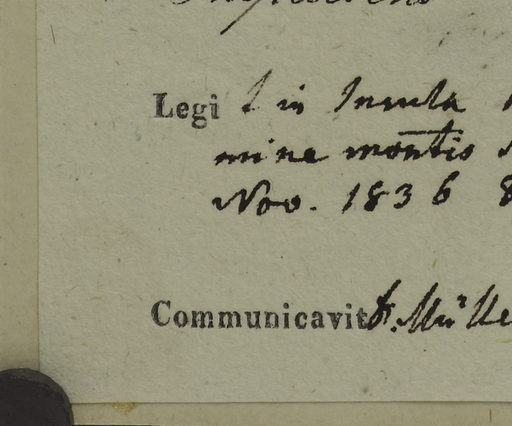 Legi in Insula
mine montis
Nov. 1836 8
Communicavit Dr. Mülle